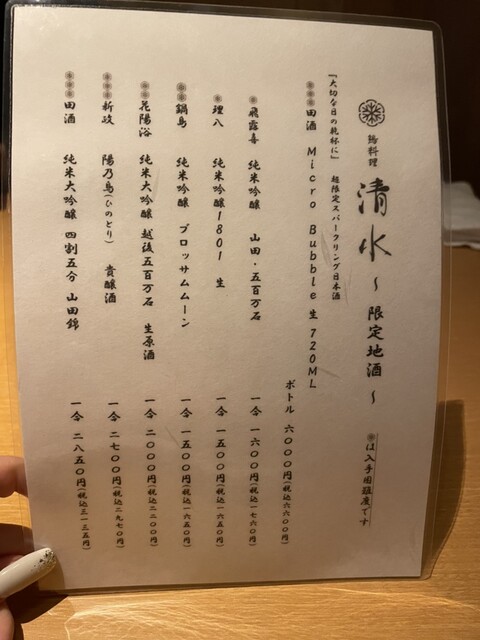 鶏料理 清水 ~ 限定地酒 ~
※は入手困難度です
『大切な日の乾杯に』 超限定スパークリング日本酒
※※※田酒 Micro Bubble 生 720ML
ボトル 六〇〇〇円(税込六六〇〇円)
※飛露喜 純米吟醸 山田・五百万石 一合 一六〇〇円(税込一七六〇円)
※理八 純米吟醸1801 生 一合 一五〇〇円(税込一六五〇円)
※鍋島 純米吟醸 ブロッサムムーン 一合 一五〇〇円(税込一六五〇円)
※※花陽浴 純米大吟醸 越後五百万石 生原酒 一合 二〇〇〇円(税込二二〇〇円)
※※※新政 陽乃鳥(ひのとり) 貴醸酒 一合 二七〇〇円(税込二九七〇円)
※※※田酒 純米大吟醸 四割五分 山田錦 一合 二八五〇円(税込三一三五円)